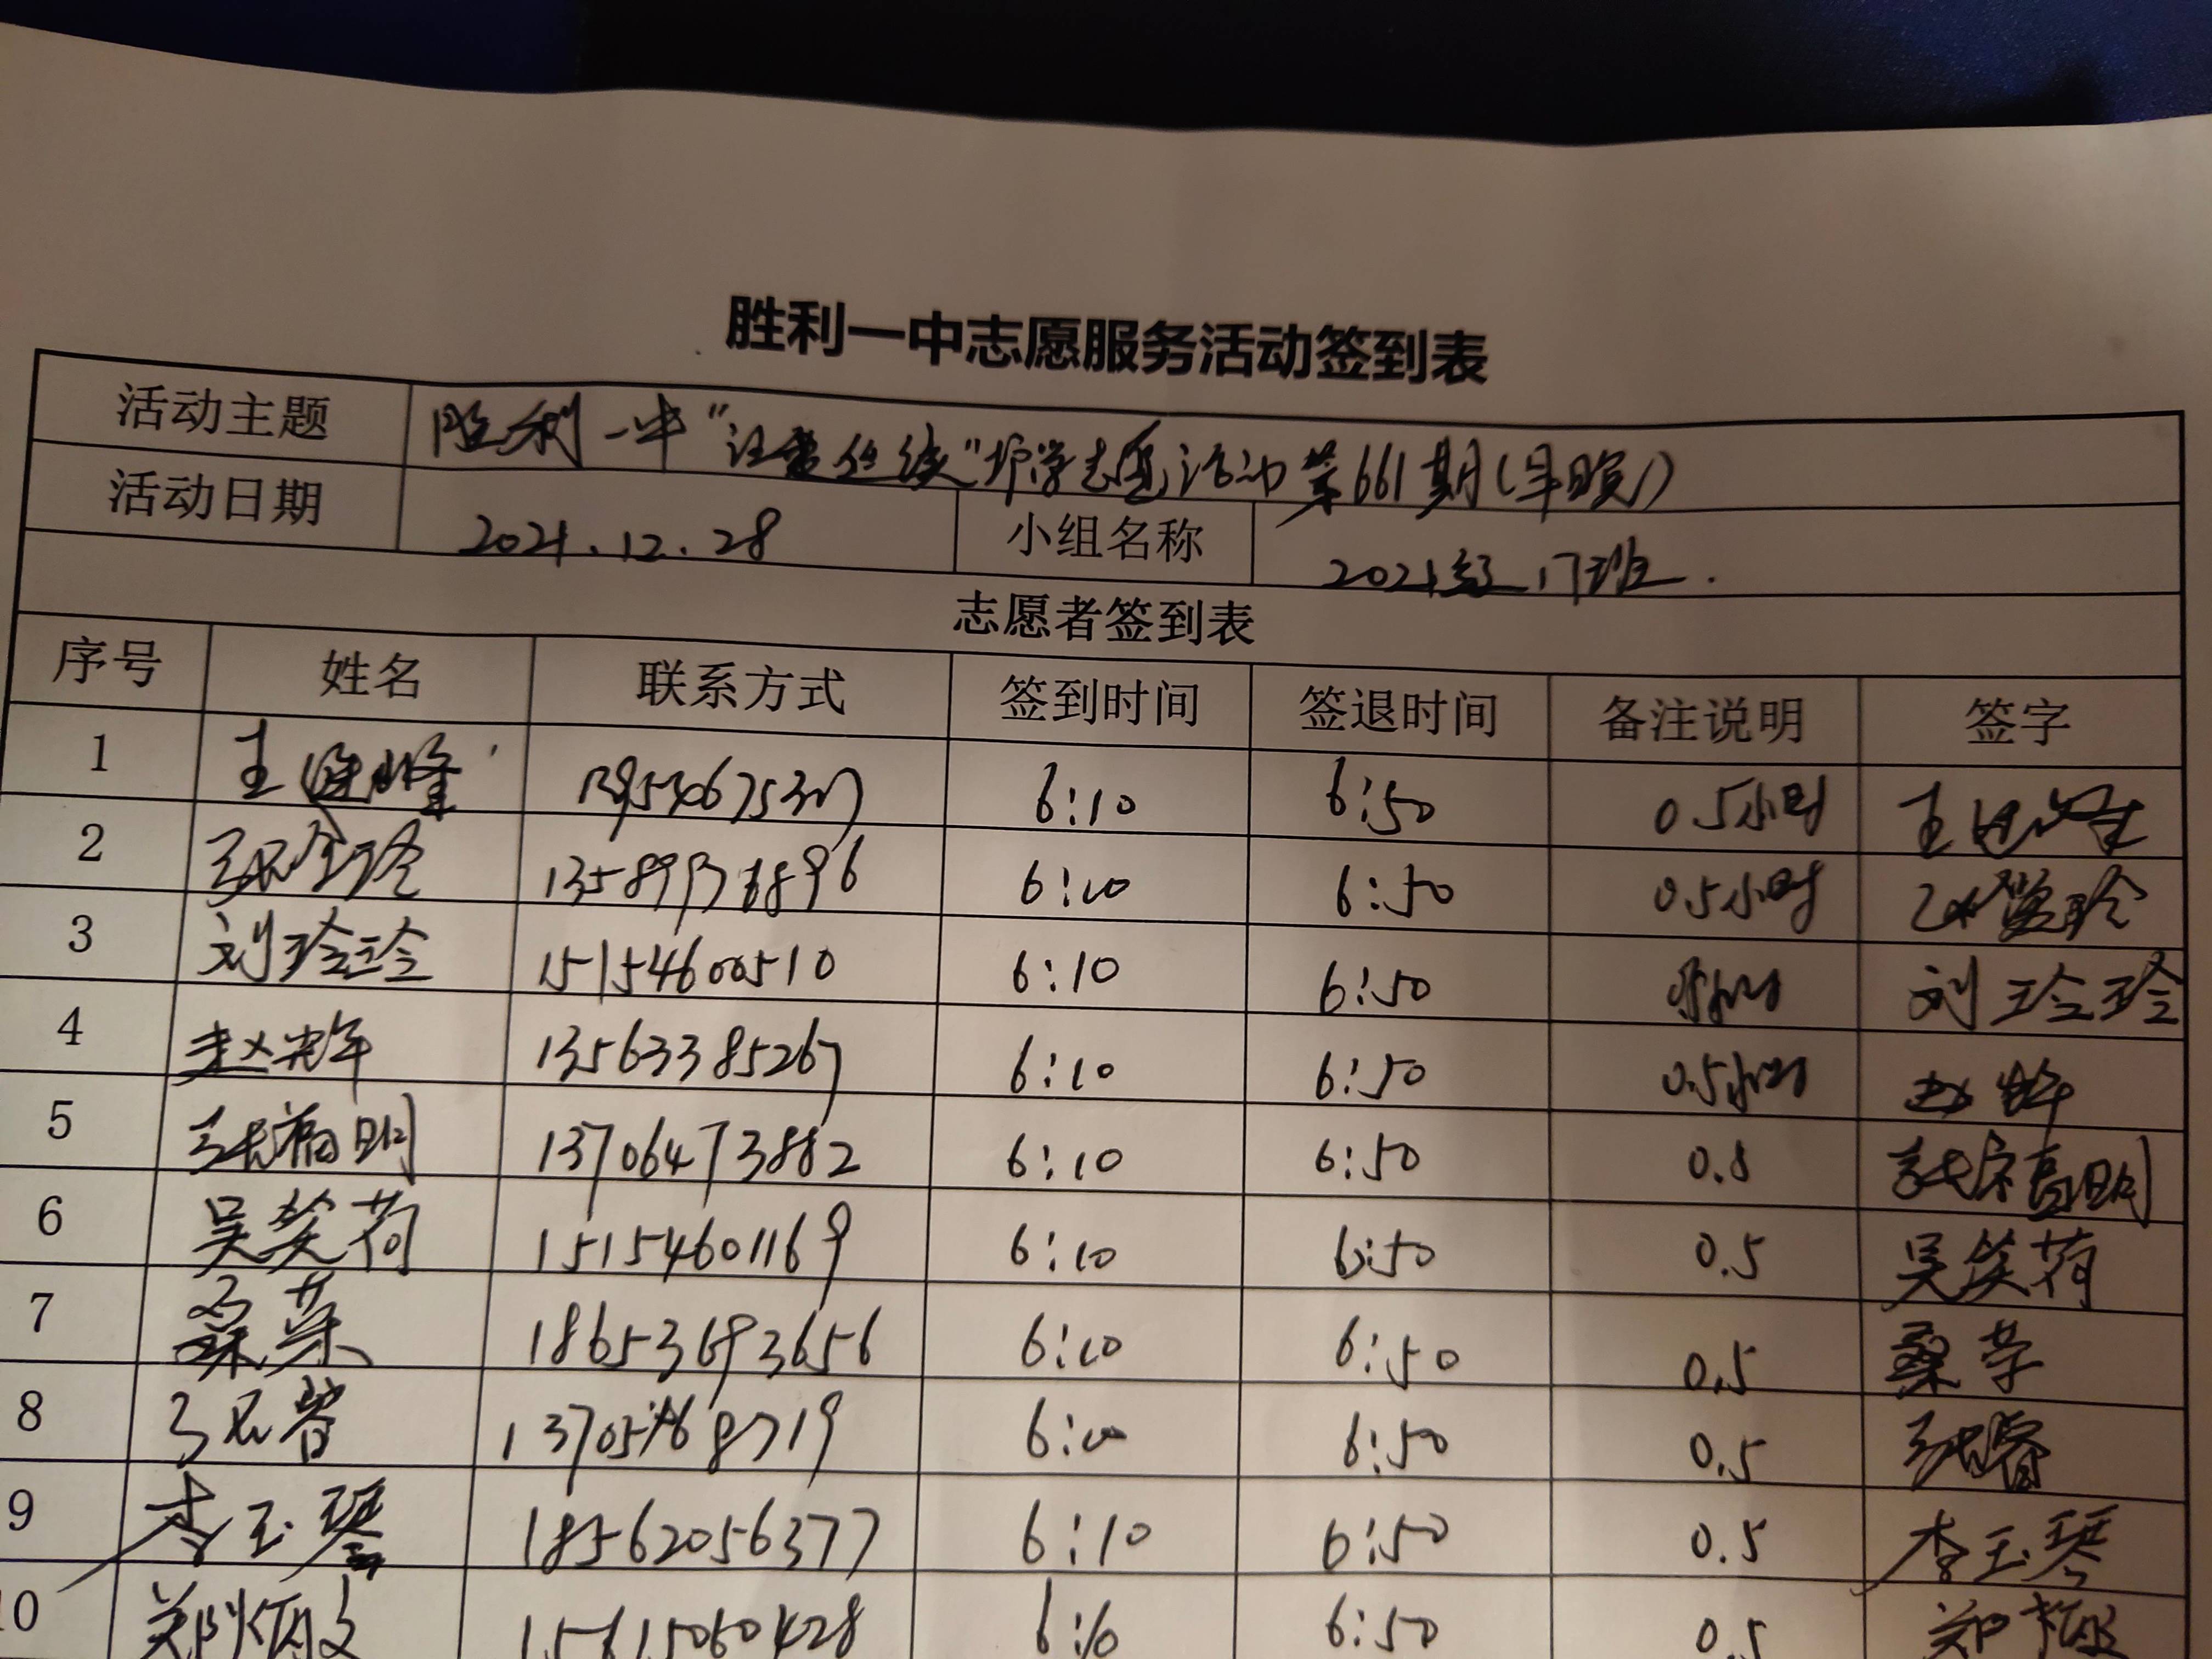 胜利一中志愿服务活动签到表
活动主题 胜利一中"让爱丝续"护学志愿活动第661期(早晚)
活动日期 2021.12.28 小组名称 2021级17班.
志愿者签到表
序号 姓名 联系方式 签到时间 签退时间 备注说明 签字
1 王 6:10 6:50 0.5小时 王
2 张 玲 6:10 6:50 0.5小时 玲
3 刘玲玲 15154600510 6:10 6:50 刘玲玲
4 赵 13563385267 6:10 6:50 0.5小时 赵
5 张福明 13706473882 6:10 6:50 0.5 张福明
6 吴笑荷 15154601169 6:10 6:50 0.5 吴笑荷
7 桑荣 18653693656 6:10 6:50 0.5 桑荣
8 张 6:10 6:50 0.5 张
9 李玉琴 18562056377 6:10 6:50 0.5 李玉琴
10 郑 6:10 6:50 0.5 郑